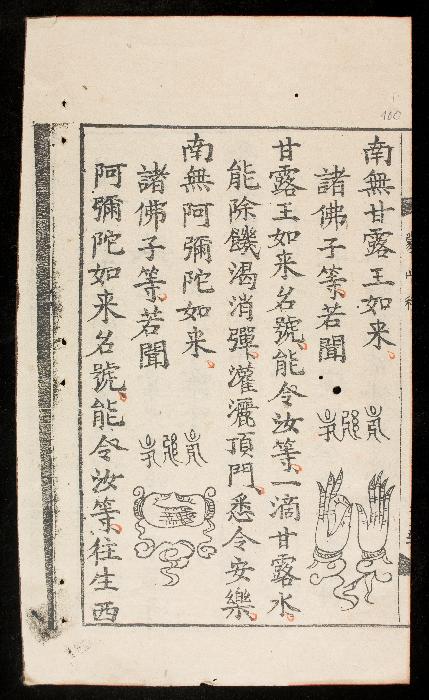 南無甘露王如来
諸佛子等若聞
甘露王如来名號能令汝等一滴甘露水
能除饑渴消彈灌灑頂門悉令安樂
南無阿彌陀如来
諸佛子等若聞
阿彌陀如来名號能令汝等往生西
100